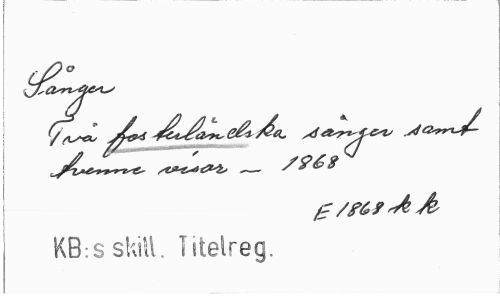 Sånger
Två fosterländska sånger samt
tvenne visor – 1868
E 1868 k k
KB:s skill. Titelreg.